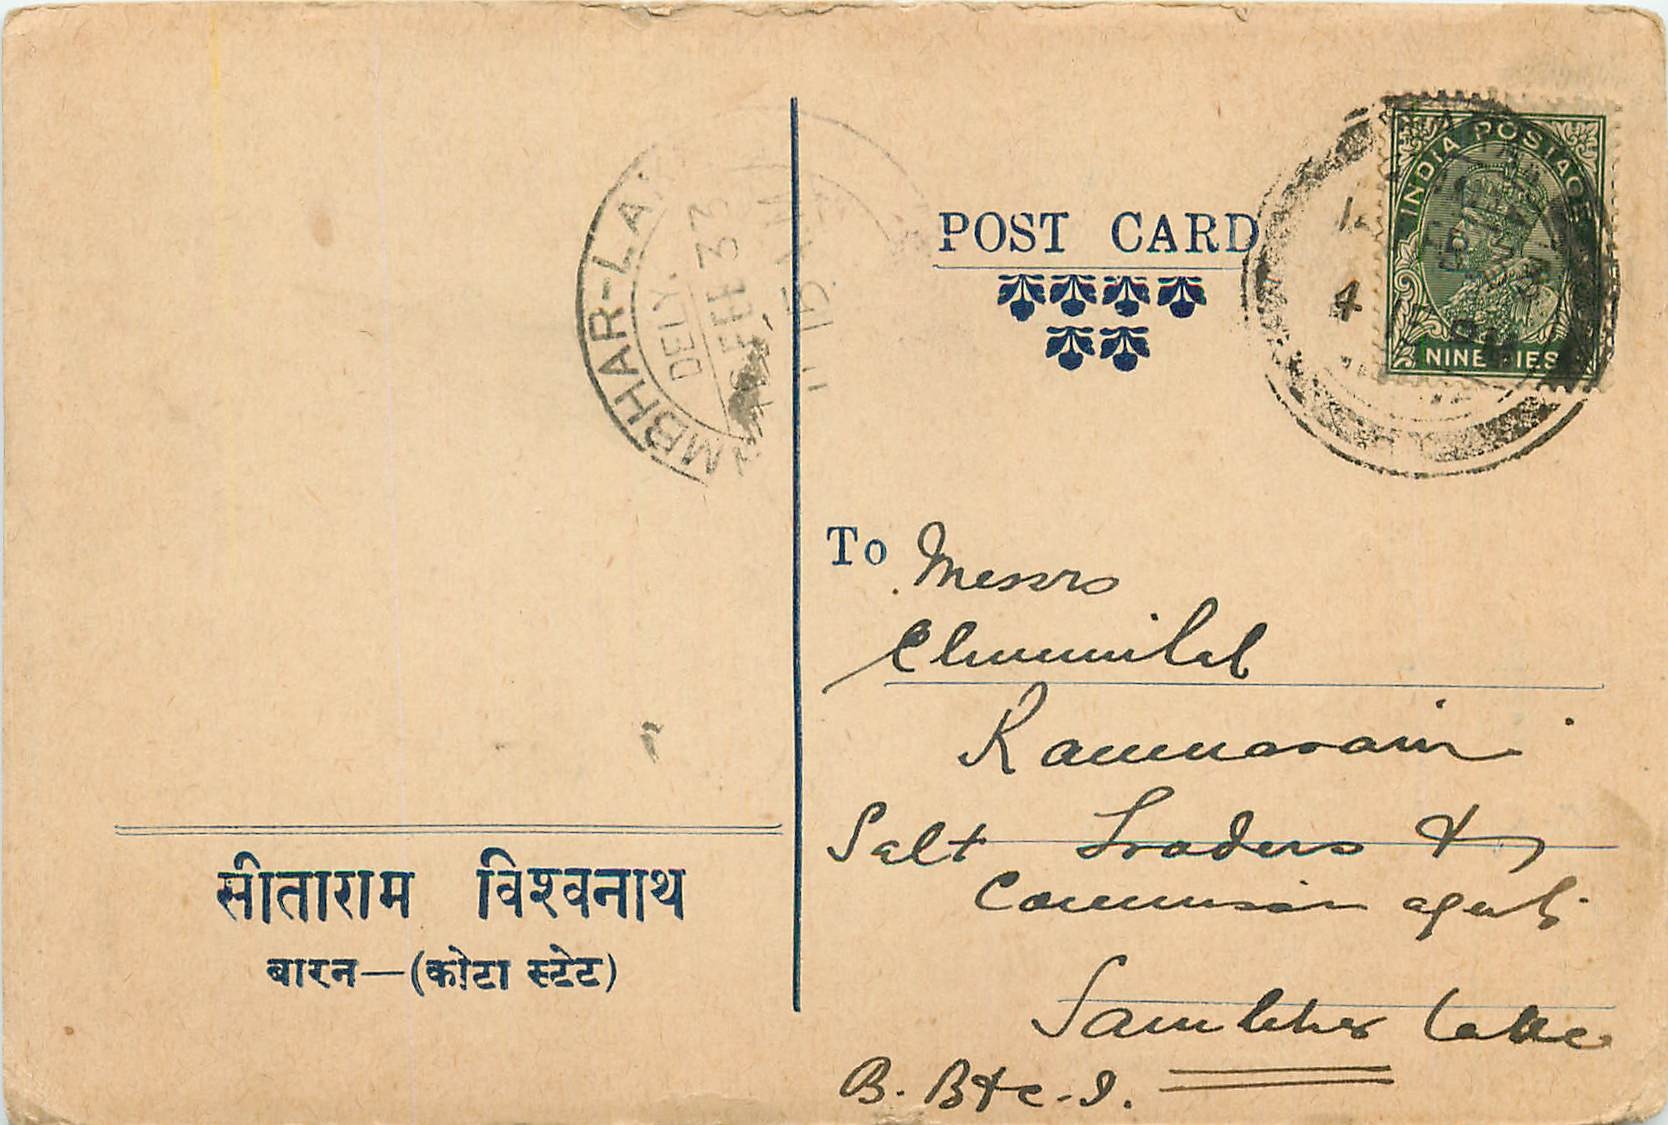 POST CARD
INDIA POSTAGE
NINE PIES
MBHAR-LAK
DELY.
FEB 33
To Messrs
Chunnilal
Ramnarain
Salt Traders &
Commission agents
Sambher Lake
B. B & C. I.
सीताराम विश्वनाथ
बारन—(कोटा स्टेट)